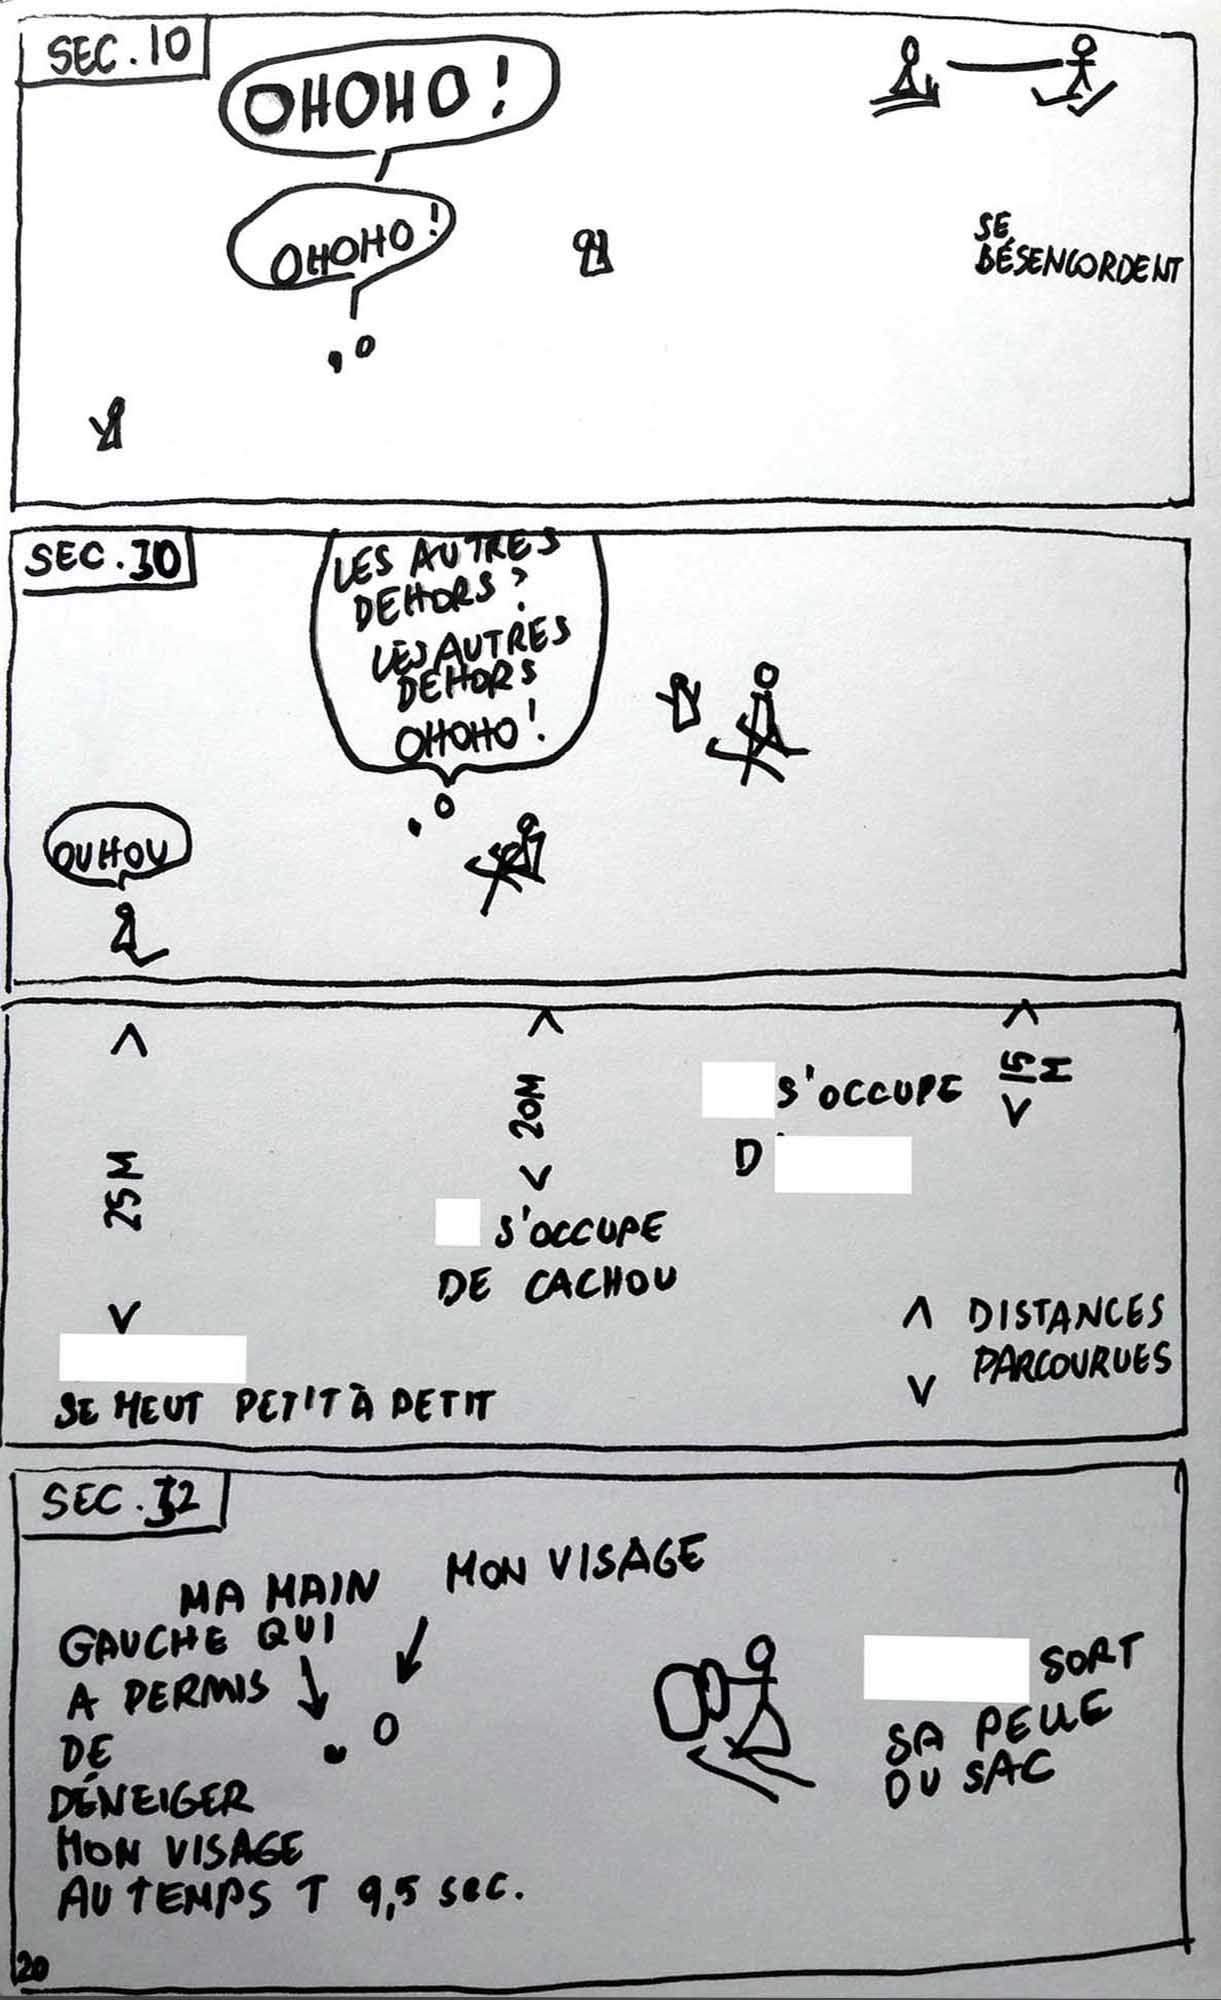 SEC. 10
OHOHO !
OHOHO !
SE
DÉSENCORDENT
SEC. 30
LES AUTRES
DEHORS ?
LES AUTRES
DEHORS
OHOHO !
OUHOU
25M
20M
15M
S'OCCUPE
D'
S'OCCUPE
DE CACHOU
SE MEUT PETIT À PETIT
DISTANCES
PARCOURUES
SEC. 32
MA MAIN
GAUCHE QUI
A PERMIS
DE
DÉNEIGER
MON VISAGE
AU TEMPS T 9,5 SEC.
MON VISAGE
SORT
SA PELLE
DU SAC
20